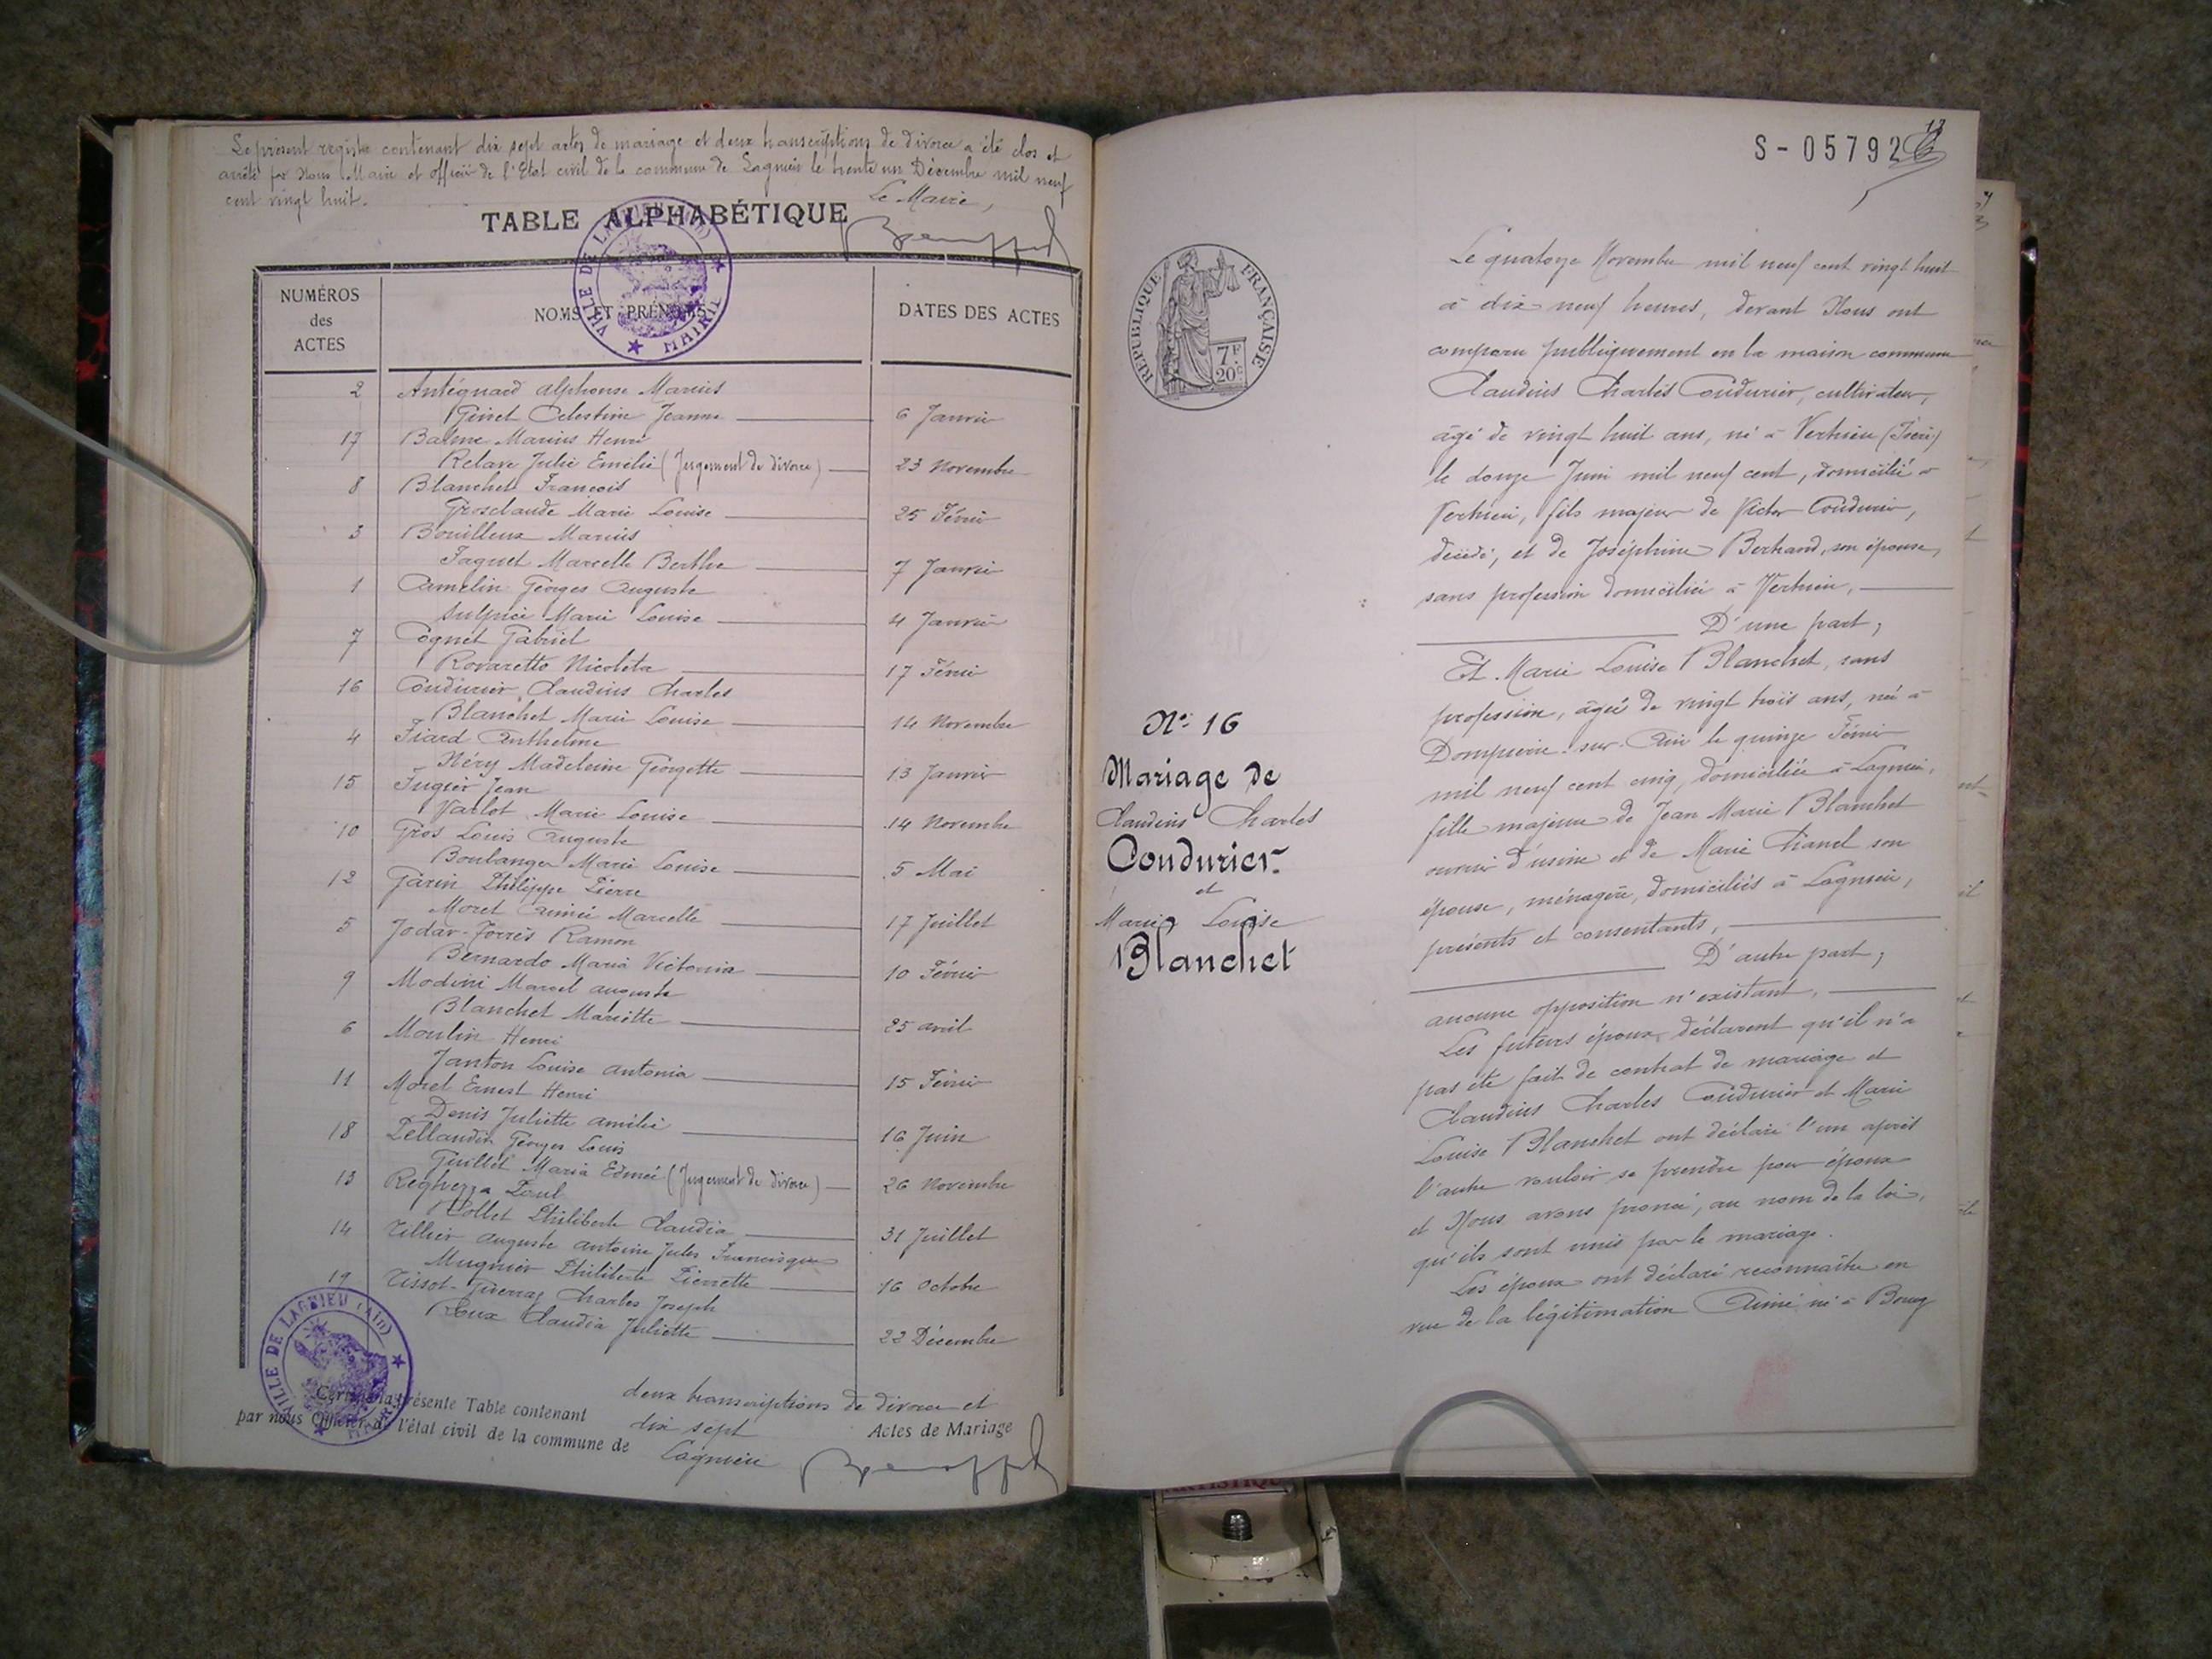 Le présent registre contenant dix sept actes de mariage et deux transcriptions de divorce a été clos et
arrêté par Nous Maire et officier de l'Etat civil de la commune de Lagnieu le trente un Décembre mil neuf
cent vingt huit.
Le Maire,
TABLE ALPHABÉTIQUE
VILLE DE LAGNIEU (Ain)
MAIRIE
NUMÉROS
des
ACTES
NOMS ET PRÉNOMS
DATES DES ACTES
2 Antéguard Alphonse Marius
Ginet Celestine Jeanne 6 Janvier
17 Balme Marius Henri
Relave Julie Emélie (Jugement de divorce) 23 Novembre
8 Blanchet François
Grosclaude Marie Louise 25 Février
3 Bouilleux Marius
Faguet Marcelle Berthe 7 Janvier
1 Camelin Georges Auguste
Sulpice Marie Louise 4 Janvier
7 Cognet Gabriel
Rovaretto Nicoleta 17 Février
16 Coudurier Claudius Charles
Blanchet Marie Louise 14 Novembre
4 Fiard Anthelme
Néry Madeleine Georgette 13 Janvier
15 Fugier Jean
Varlot Marie Louise 14 Novembre
10 Gros Louis Auguste
Boulanger Marie Louise 5 Mai
12 Garin Philippe Pierre
Moret Aimée Marcelle 17 Juillet
5 Jodar-Torrès Ramon
Bernardo Maria Victoria 10 Février
9 Modini Marcel Auguste
Blanchet Mariette 25 avril
6 Moulin Henri
Janton Louise Antonia 15 Février
11 Morel Ernest Henri
Denis Juliette Amélie 16 Juin
18 Pellaudin Georges Louis
Guillet Maria Edmée (Jugement de divorce) 26 Novembre
13 Reghezza Paul
Collet Philiberte Claudia 31 Juillet
14 Tillier Auguste Antoine Jules Francisque
Mugnier Philiberte Pierrette 16 Octobre
19 Tissot Charles Joseph
Roux Claudia Juliette 22 Décembre
VILLE DE LAGNIEU (Ain)
MAIRIE
Certifié la présente Table contenant deux transcriptions de divorce et
dix sept Actes de Mariage
par nous Officier de l'état civil de la commune de Lagnieu
S-05792
13
RÉPUBLIQUE FRANÇAISE
7F
20c
N° 16
Mariage de
Claudius Charles
Coudurier
et
Marie Louise
Blanchet
Le quatorze Novembre mil neuf cent vingt huit
à dix neuf heures, devant Nous ont
comparu publiquement en la maison commune
Claudius Charles Coudurier, cultivateur,
âgé de vingt huit ans, né à Vertrieu (Isère)
le douze Juin mil neuf cent, domicilié à
Vertrieu, fils majeur de Victor Coudurier,
décédé, et de Joséphine Bertrand, son épouse,
sans profession domiciliée à Vertrieu,
D'une part,
Et Marie Louise Blanchet, sans
profession, âgée de vingt trois ans, née à
Dompierre-sur-Ain le quinze Février
mil neuf cent cinq, domiciliée à Lagnieu,
fille majeure de Jean Marie Blanchet
ouvrier d'usine et de Marie Chanel son
épouse, ménagère, domiciliés à Lagnieu,
présents et consentants,
D'autre part,
aucune opposition n'existant,
Les futurs époux déclarent qu'il n'a
pas été fait de contrat de mariage et
Claudius Charles Coudurier et Marie
Louise Blanchet ont déclaré l'un après
l'autre vouloir se prendre pour époux
et Nous avons prononcé, au nom de la loi,
qu'ils sont unis par le mariage.
Les époux ont déclaré reconnaître en
vue de la légitimation Aimé, né à Bourg